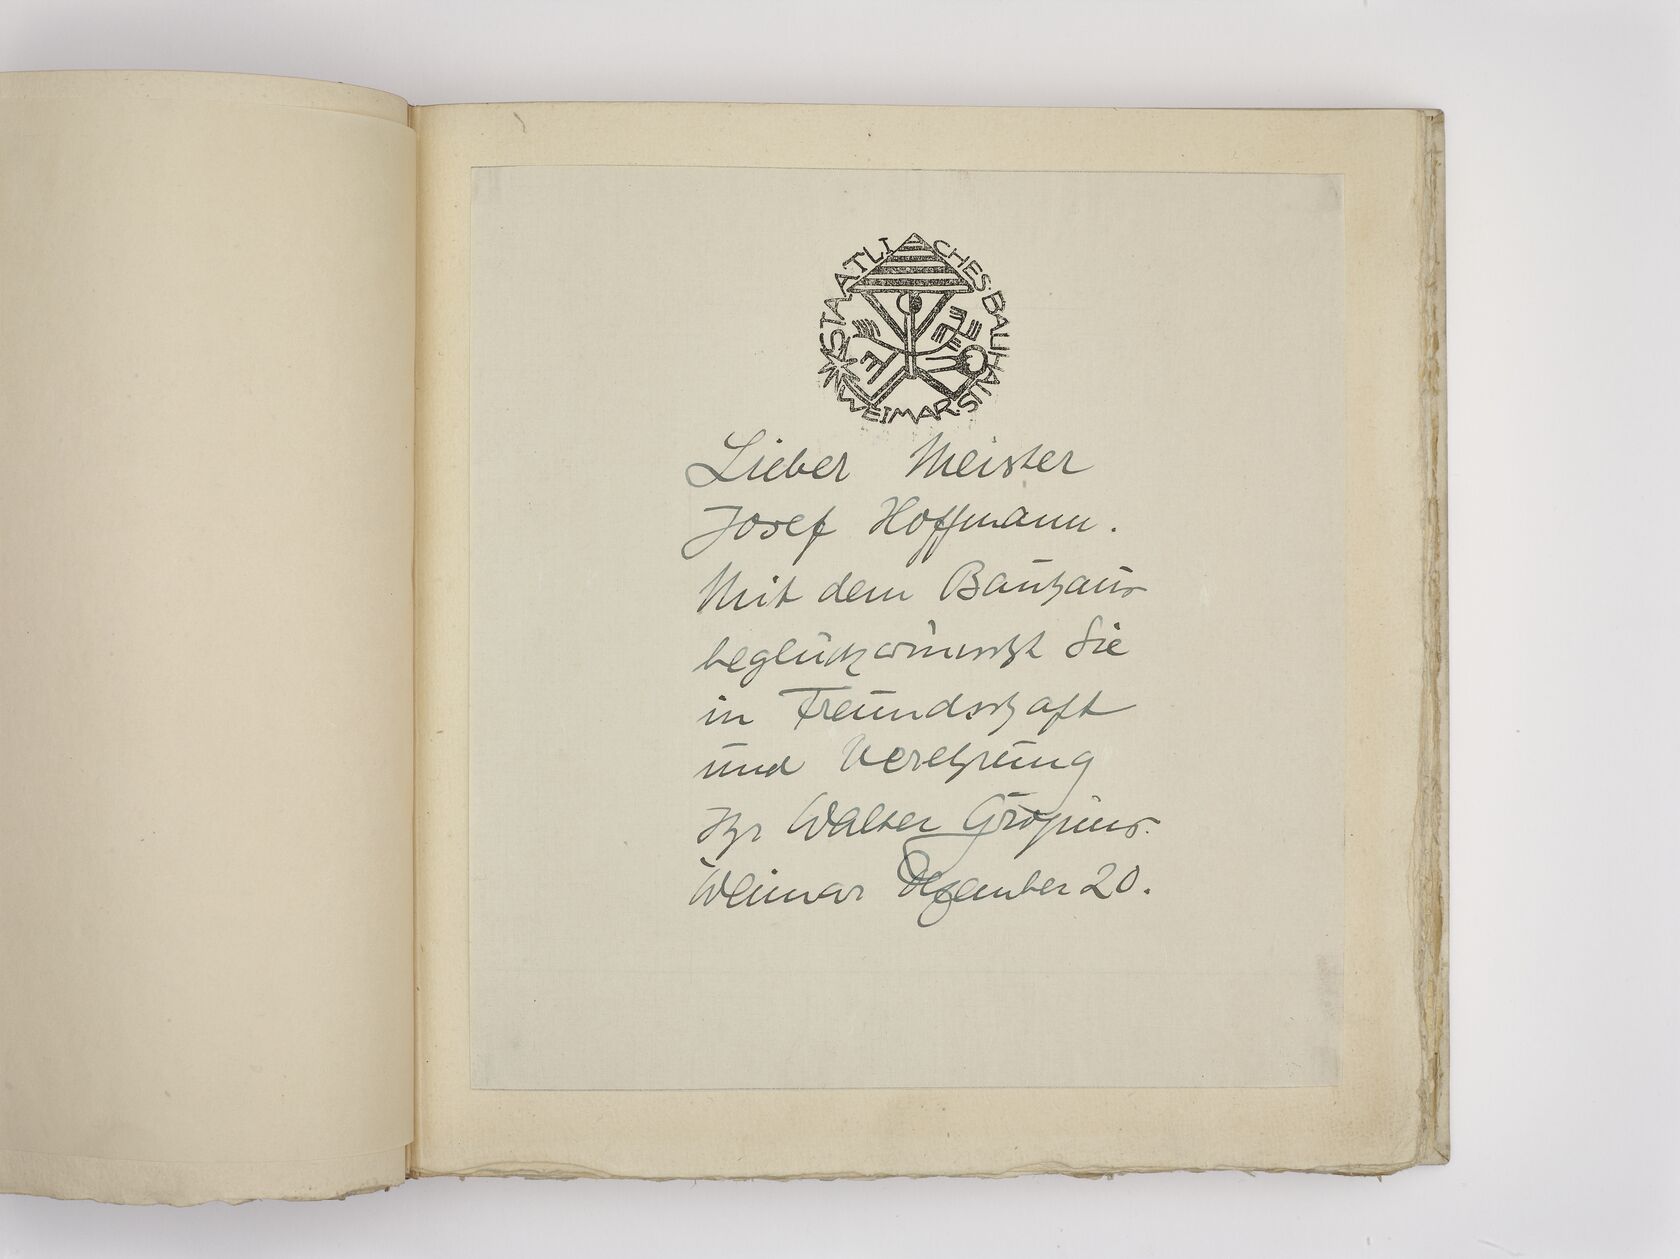 STAATLICHES·BAUHAUS WEIMAR
Lieber Meister
Josef Hoffmann.
Mit dem Bauhaus
beglückwünscht Sie
in Freundschaft
und Verehrung
Ihr Walter Gropius.
Weimar Dezember 20.